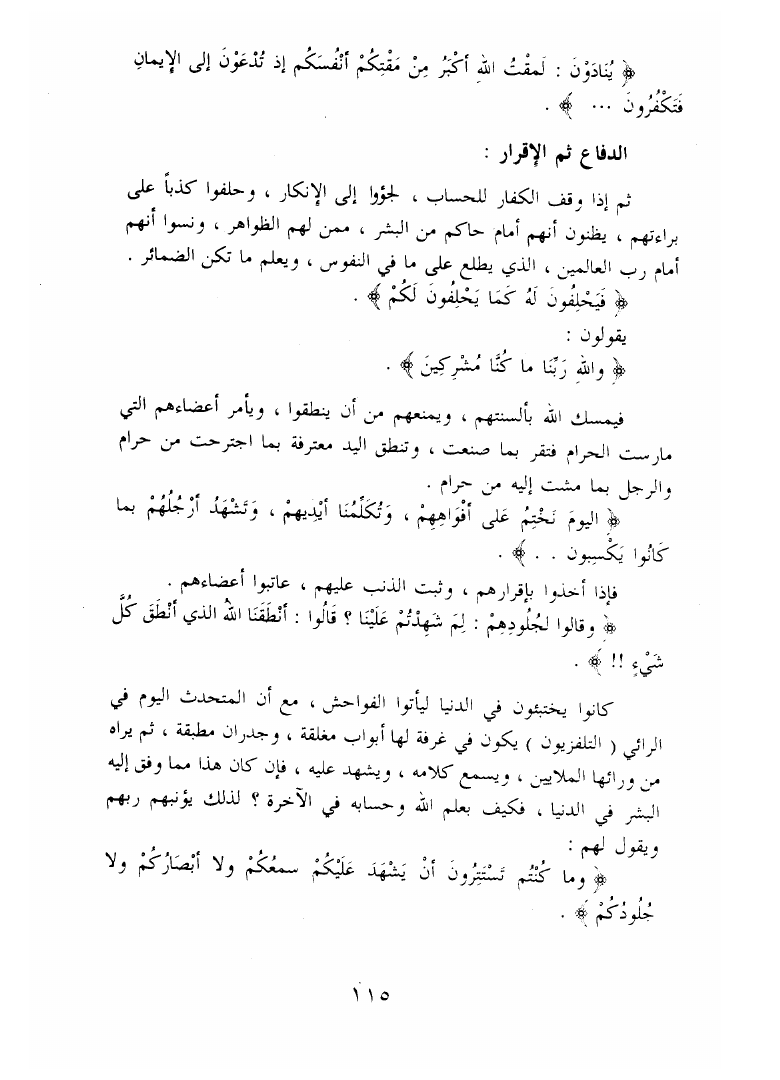 ﴿ يُنَادَوْنَ : لَمقْتُ اللهِ أكْبَرُ مِنْ مَقْتِكُمْ أنْفُسَكُم إذ تُدْعَوْنَ إلى الإِيمانِ
فَتَكْفُرُونَ ... ﴾ .
الدفاع ثم الإِقرار :
ثم إذا وقف الكفار للحساب ، لجؤوا إلى الإِنكار ، وحلفوا كذباً على
براءتهم ، يظنون أنهم أمام حاكم من البشر ، ممن لهم الظواهر ، ونسوا أنهم
أمام رب العالمين ، الذي يطلع على ما في النفوس ، ويعلم ما تكن الضمائر .
﴿ فَيَحْلِفُونَ لَهُ كَمَا يَحْلِفُونَ لَكُمْ ﴾ .
يقولون :
﴿ واللهِ رَبِّنَا ما كُنَّا مُشْرِكِينَ ﴾ .
فيمسك الله بألسنتهم ، ويمنعهم من أن ينطقوا ، ويأمر أعضاءهم التي
مارست الحرام فتقر بما صنعت ، وتنطق اليد معترفة بما اجترحت من حرام
والرجل بما مشت إليه من حرام .
﴿ اليومَ نَخْتِمُ عَلى أفْوَاهِهِمْ ، وَتُكَلِّمُنَا أيْدِيهمْ ، وَتَشْهَدُ أرْجُلُهُمْ بما
كَانُوا يَكْسِبون . . ﴾ .
فإذا أخذوا بإقرارهم ، وثبت الذنب عليهم ، عاتبوا أعضاءهم .
﴿ وقالوا لجُلُودِهِمْ : لِمَ شَهِدْتُمْ عَلَيْنَا ؟ قَالُوا : أنْطَقَنَا اللهُ الذي أنْطَقَ كُلَّ
شَيْءٍ !! ﴾ .
كانوا يختبئون في الدنيا ليأتوا الفواحش ، مع أن المتحدث اليوم في
الرائي ( التلفزيون ) يكون في غرفة لها أبواب مغلقة ، وجدران مطبقة ، ثم يراه
من ورائها الملايين ، ويسمع كلامه ، ويشهد عليه ، فإن كان هذا مما وفق إليه
البشر في الدنيا ، فكيف بعلم الله وحسابه في الآخرة ؟ لذلك يؤنبهم ربهم
ويقول لهم :
﴿ وما كُنْتُم تَسْتَتِرُونَ أنْ يَشْهَدَ عَلَيْكُمْ سمعُكُمْ ولا أبْصَارُكُمْ ولا
جُلُودُكُمْ ﴾ .
١١٥